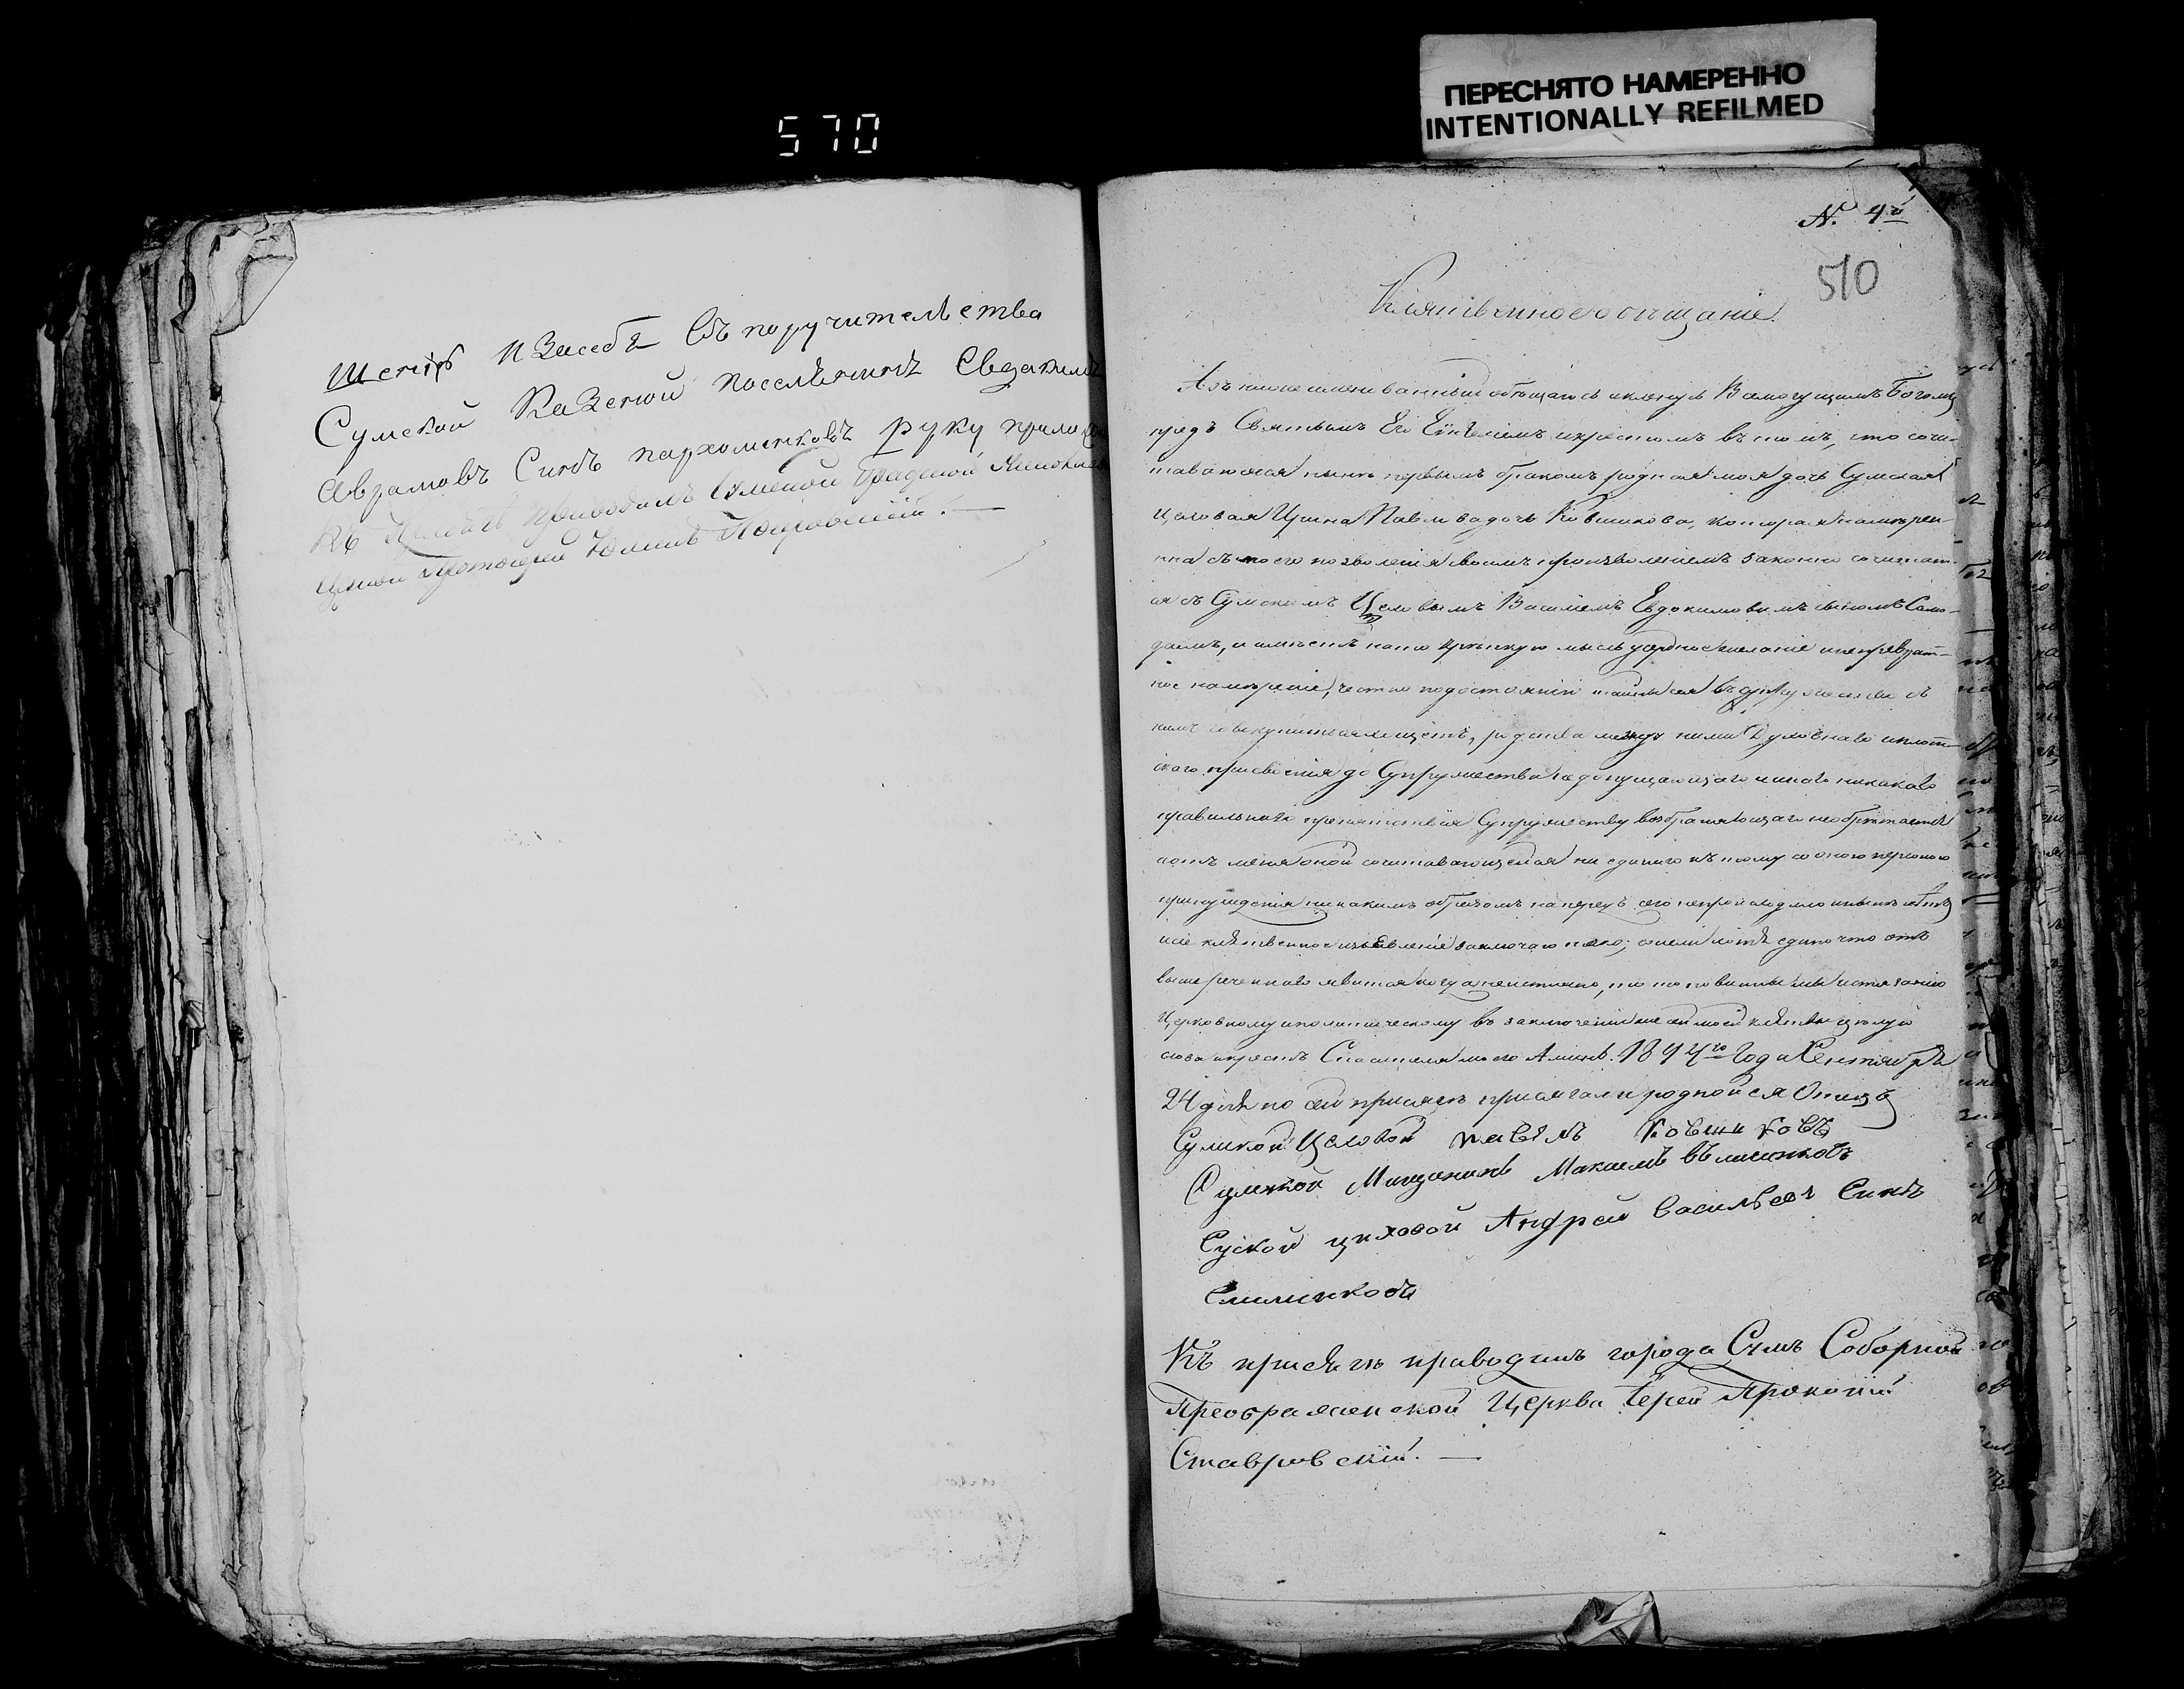 570
ПЕРЕСНЯТО НАМЕРЕННО
INTENTIONALLY REFILMED
и Засебя Съ поручителства
Сумской Казеной поселянинъ Евдокимъ
Аврамовъ Синъ пархоменковъ руку прило
Къ Присягѣ приводилъ Сумской Градской
Церкви Протоиерей
N. 4й
510
Клятвенное обещание
Азъ нижеименованный обещаюсь и клянусь Всемогущимъ Богомъ
предъ Святымъ Его Еvлиемъ и крестомъ въ томъ, что сочи-
тавающаяся нынѣ первымъ бракомъ родная моя дочь Сумская
Цеховая Ирина Павлова дочь Ковшикова, которая намерен-
на съ моего позволения своимъ произволениемъ законно сочетат-
ся съ Сумскимъ Цеховымъ Василиемъ Евдокимовимъ сыномъ
и имѣетъ на то крѣпкую мысль усердное желание и непреврат-
ное намѣрение, честно
нимъ совокупитися ищетъ, родства между ними Духовнаго и плот-
скаго присвоения до Супружества недопущающаго и инаго никакаго
правильнаго препятствия Супружеству возбраняющаго необрѣтается
и отъ меня оной сочитавающейся ни единаго къ тому со оною персоною
принуждения никакимъ образомъ напредъ сего непроисходило
сие клятвенное изъявление заключаю тако; ежели хотя едино что отъ
вышереченнаго явится когда неистинно, то повинны мы истязанию
Церковному и политическому въ заключении же сей моей клятвы цѣлую
слова и крестъ Спасителя моего Аминь. 18 4го Года Сентября
24 дня по сей присягѣ присягали родной ея Отецъ
Сумской Цеховой павѣлъ Ковшиковъ
Сумской Мищанинъ Максимъ
Суской циховой Андрей Васильевъ Синъ
Къ присягѣ приводилъ города Сумъ Соборной
Преображенской Церкви Иерей Прокопий
Ставровский.